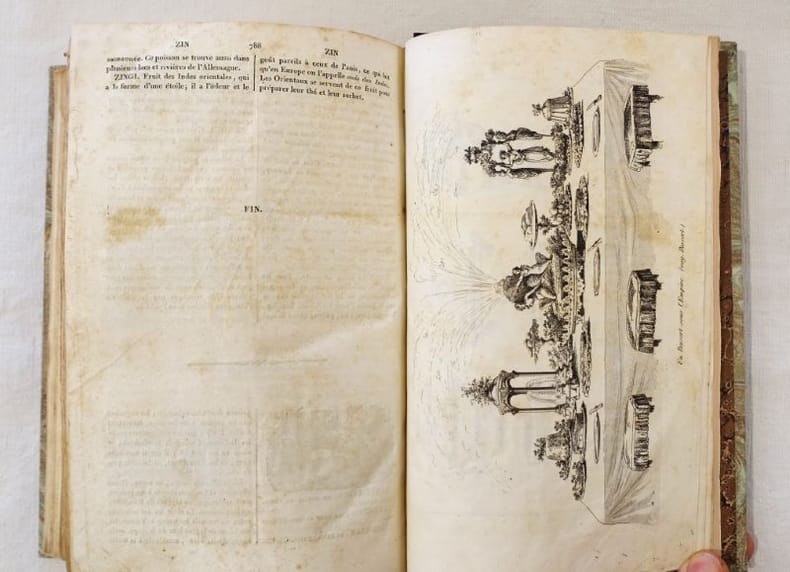 ZIN
788
ZIN
saumonée. Ce poisson se trouve aussi dans
plusieurs lacs et rivières de l'Allemagne.
ZINGI. Fruit des Indes orientales, qui
a la forme d'une étoile; il a l'odeur et le
goût pareils à ceux de l'anis, ce qui fait
qu'en Europe on l'appelle anis des Indes.
Les Orientaux se servent de ce fruit pour
préparer leur thé et leur sorbet.
FIN.
Un Dessert sous l'Empire. (voy. Dessert.)